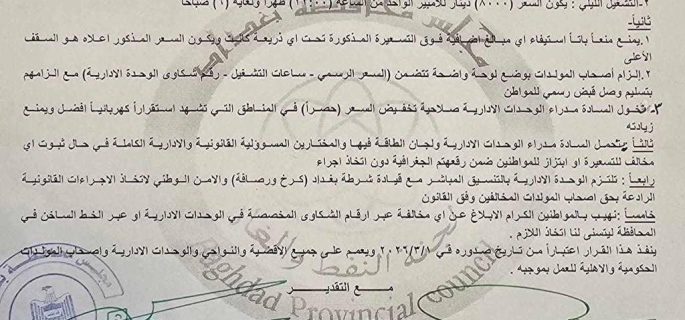 ٢-التشغيل الليلي : يكون السعر (٨٠٠٠) دينار للأمبير الواحد من الساعة (١٢:٠٠) ظهراً ولغاية (٦) صباحاً
ثانياً-
١.يمنع منعاً باتاً استيفاء اي مبالغ اضافية فوق التسعيرة المذكورة تحت اي ذريعة كانت ويكون السعر المذكور اعلاه هو السقف
الأعلى
٢.إلزام أصحاب المولدات بوضع لوحة واضحة تتضمن (السعر الرسمي - ساعات التشغيل - رقم شكاوى الوحدة الادارية) مع الزامهم
بتسليم وصل قبض رسمي للمواطن
٣- تخول السادة مدراء الوحدات الادارية صلاحية تخفيض السعر (حصراً) في المناطق التي تشهد استقراراً كهربائياً افضل ويمنع
زيادته
ثالثاً :- يتحمل السادة مدراء الوحدات الادارية ولجان الطاقة فيها والمختارين المسوولية القانونية والادارية الكاملة في حال ثبوت اي
مخالف للتسعيرة او ابتزاز للمواطنين ضمن رقعتهم الجغرافية دون اتخاذ اجراء
رابعاً : تلتزم الوحدة الادارية بالتنسيق المباشر مع قيادة شرطة بغداد (كرخ ورصافة) والامن الوطني لاتخاذ الاجراءات القانونية
الرادعة بحق اصحاب المولدات المخالفين وفق القانون
خامساً : نهيب بالمواطنين الكرام الابلاغ عن اي مخالفة عبر ارقام الشكاوى المخصصة في الوحدات الادارية او عبر الخط الساخن في
المحافظة ليتسنى لنا اتخاذ اللازم .
ينفذ هذا القرار اعتباراً من تاريخ صدوره في ٢٠٢٦/٣/١ ويعمم على جميع الاقضية والنواحي والوحدات الادارية واصحاب المولدات
الحكومية والاهلية للعمل بموجبه .
مع التقدير
مجلس محافظة بغداد
لجنة النفط والغاز
Baghdad Provincial council